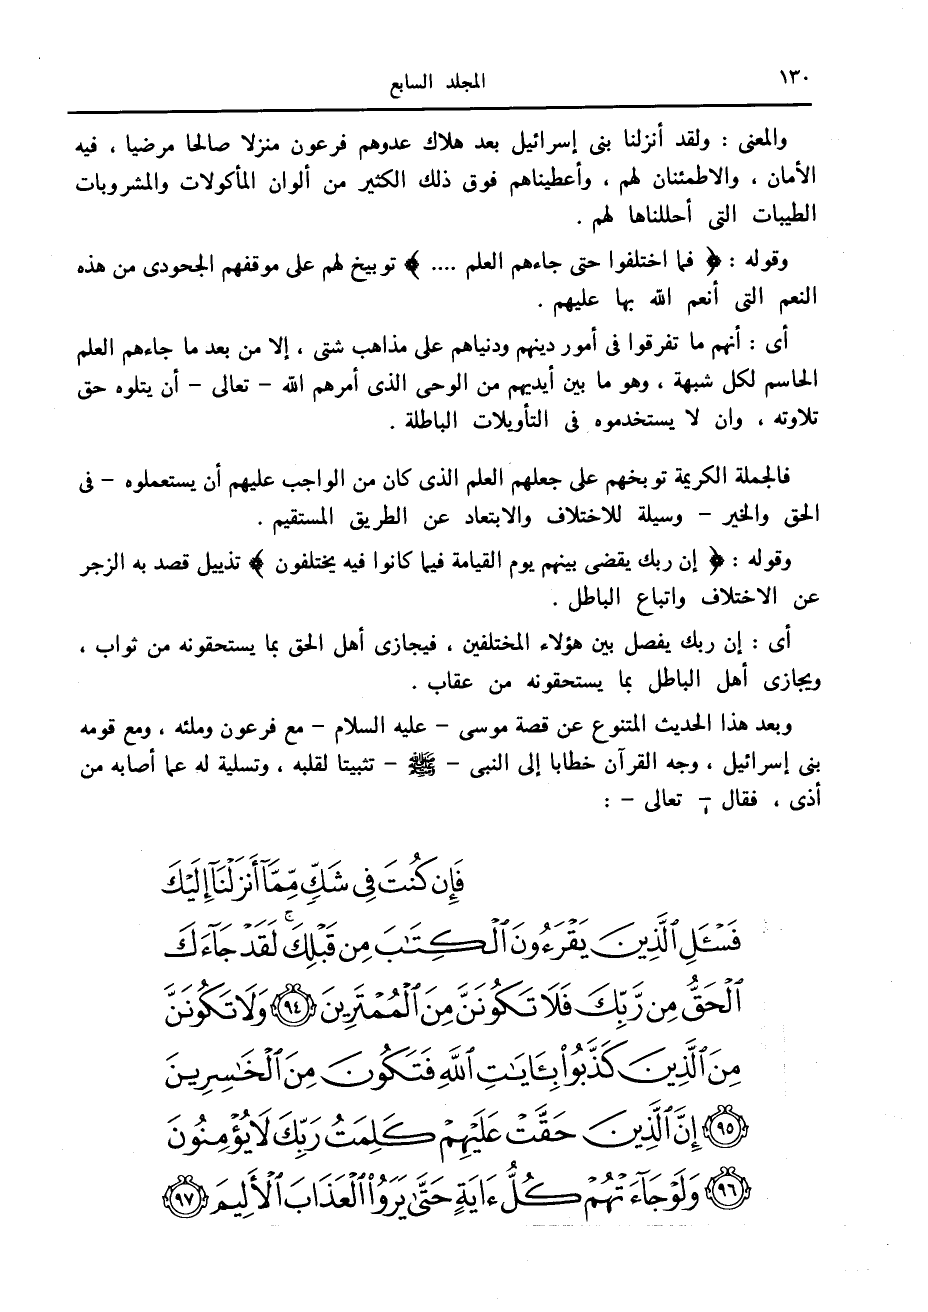 ١٣٠
المجلد السابع
والمعنى : ولقد أنزلنا بنى إسرائيل بعد هلاك عدوهم فرعون منزلا صالحا مرضيا ، فيه
الأمان ، والاطمئنان لهم ، وأعطيناهم فوق ذلك الكثير من ألوان المأكولات والمشروبات
الطيبات التى أحللناها لهم .
وقوله : ﴿ فما اختلفوا حتى جاءهم العلم .... ﴾ توبيخ لهم على موقفهم الجحودى من هذه
النعم التى أنعم الله بها عليهم .
أى : أنهم ما تفرقوا فى أمور دينهم ودنياهم على مذاهب شتى ، إلا من بعد ما جاءهم العلم
الحاسم لكل شبهة ، وهو ما بين أيديهم من الوحى الذى أمرهم الله – تعالى – أن يتلوه حق
تلاوته ، وان لا يستخدموه فى التأويلات الباطلة .
فالجملة الكريمة توبخهم على جعلهم العلم الذى كان من الواجب عليهم أن يستعملوه – فى
الحق والخير – وسيلة للاختلاف والابتعاد عن الطريق المستقيم .
وقوله : ﴿ إن ربك يقضى بينهم يوم القيامة فيما كانوا فيه يختلفون ﴾ تذييل قصد به الزجر
عن الاختلاف واتباع الباطل .
أى : إن ربك يفصل بين هؤلاء المختلفين ، فيجازى أهل الحق بما يستحقونه من ثواب ،
ويجازى أهل الباطل بما يستحقونه من عقاب .
وبعد هذا الحديث المتنوع عن قصة موسى – عليه السلام – مع فرعون وملئه ، ومع قومه
بنى إسرائيل ، وجه القرآن خطابا إلى النبى – ﷺ – تثبيتا لقلبه ، وتسلية له عما أصابه من
أذى ، فقال – تعالى – :
فَإِن كُنتَ فِى شَكٍّ مِّمَّآ أَنزَلْنَآ إِلَيْكَ
فَسْـَٔلِ ٱلَّذِينَ يَقْرَءُونَ ٱلْكِتَٰبَ مِن قَبْلِكَ ۚ لَقَدْ جَآءَكَ
ٱلْحَقُّ مِن رَّبِّكَ فَلَا تَكُونَنَّ مِنَ ٱلْمُمْتَرِينَ ﴿٩٤﴾ وَلَا تَكُونَنَّ
مِنَ ٱلَّذِينَ كَذَّبُوا۟ بِـَٔايَٰتِ ٱللَّهِ فَتَكُونَ مِنَ ٱلْخَٰسِرِينَ
﴿٩٥﴾ إِنَّ ٱلَّذِينَ حَقَّتْ عَلَيْهِمْ كَلِمَتُ رَبِّكَ لَا يُؤْمِنُونَ
﴿٩٦﴾ وَلَوْ جَآءَتْهُمْ كُلُّ ءَايَةٍ حَتَّىٰ يَرَوُا۟ ٱلْعَذَابَ ٱلْأَلِيمَ ﴿٩٧﴾